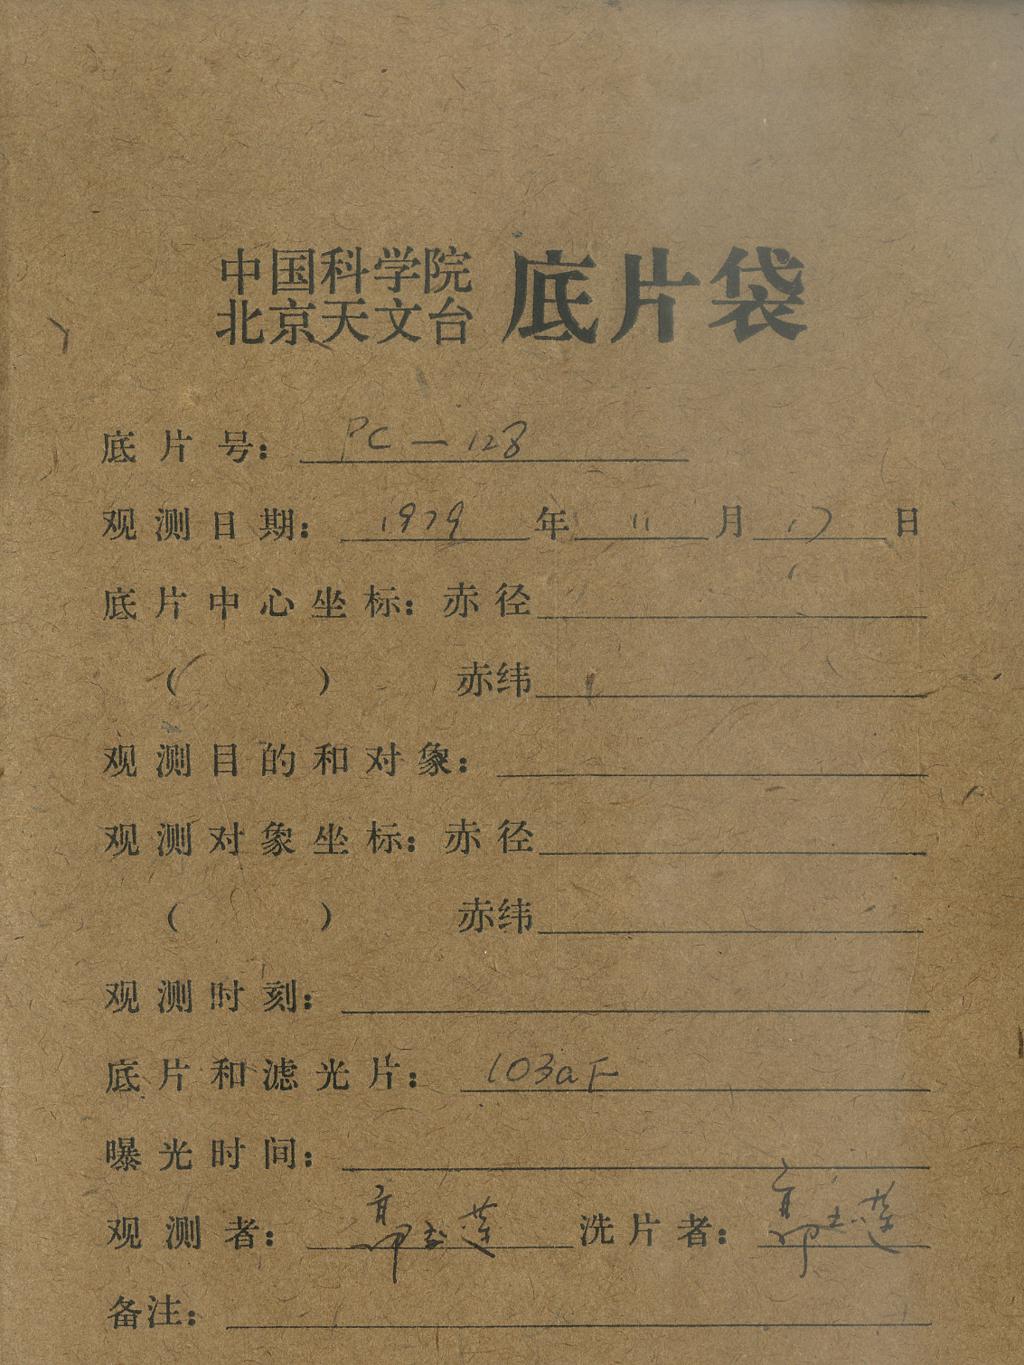 中国科学院
北京天文台 底片袋
底片号: PC—128
观测日期: 1979 年 11 月 17 日
底片中心坐标: 赤径
( ) 赤纬
观测目的和对象:
观测对象坐标: 赤径
( ) 赤纬
观测时刻:
底片和滤光片: 103aF
曝光时间:
观测者: 郭玉莲 洗片者: 郭玉莲
备注: